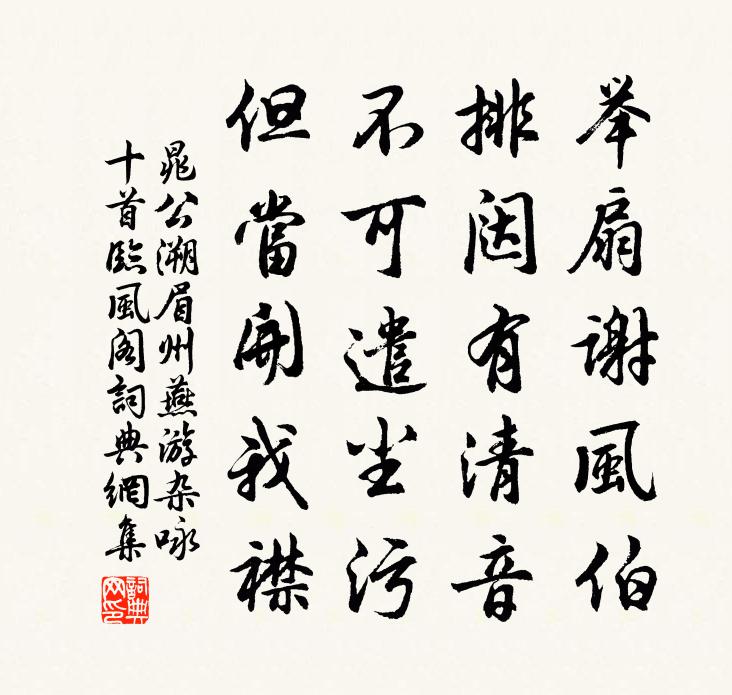 举扇謝風伯
排闼有清音
不可遣尘污
但當開我襟
晁公溯眉州燕游杂咏
十首臨風阁詞典網集
詞典
网印